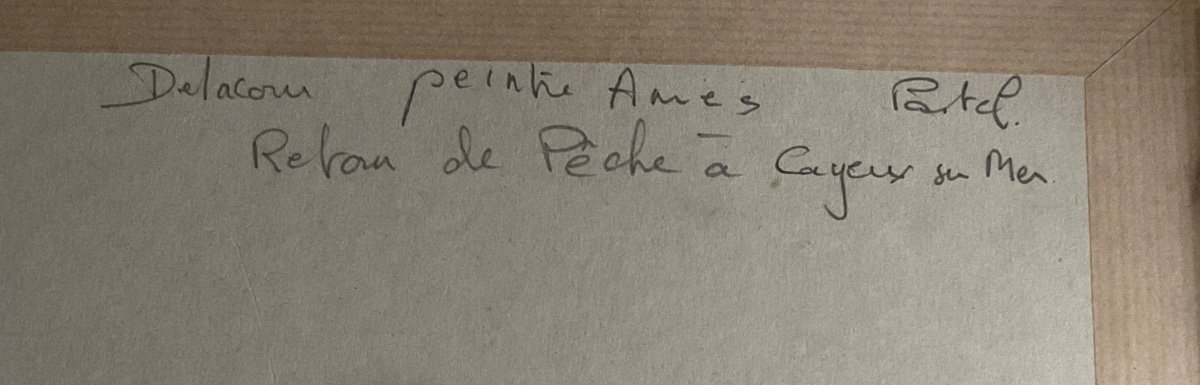 Delacour peintre Amiens Pastel.
Retour de Pêche à Cayeux sur Mer